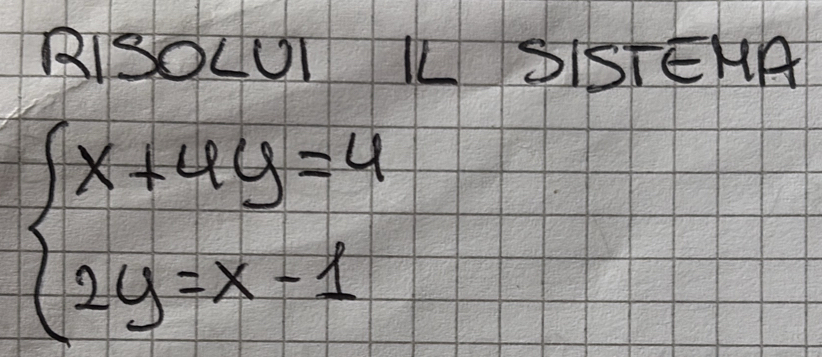 RISOLVI IL SISTEMA
x+4y=4
2y=x-1